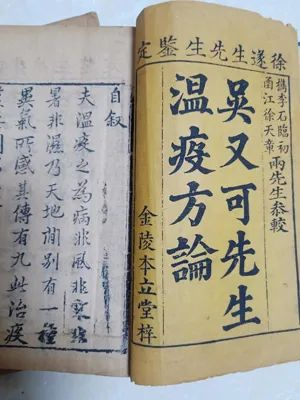 徐遂生先生鑒定
檇李石臨初
甬江徐天章
兩先生叅較
吳又可先生
溫疫方論
金陵本立堂梓
自叙
夫溫疫之為病非風非寒非
暑非濕乃天地間別有一種
異氣所感其傳有九此治疫